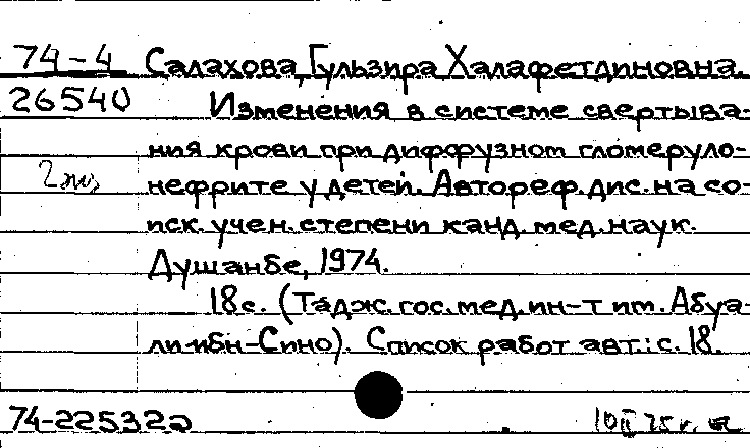 74-4 Салахова, Гульзира Халафетдиновна.
26540 Изменения в системе свертыва-
ния крови при диффузном гломеруло-
2 нефрите у детей. Автореф. дис. на со-
иск. учен. степени канд. мед. наук.
Душанбе, 1974.
18 с. (Тадж. гос. мед. ин-т им. Абуа-
ли-ибн-Сино). Список работ авт.: с. 18.
74-22532